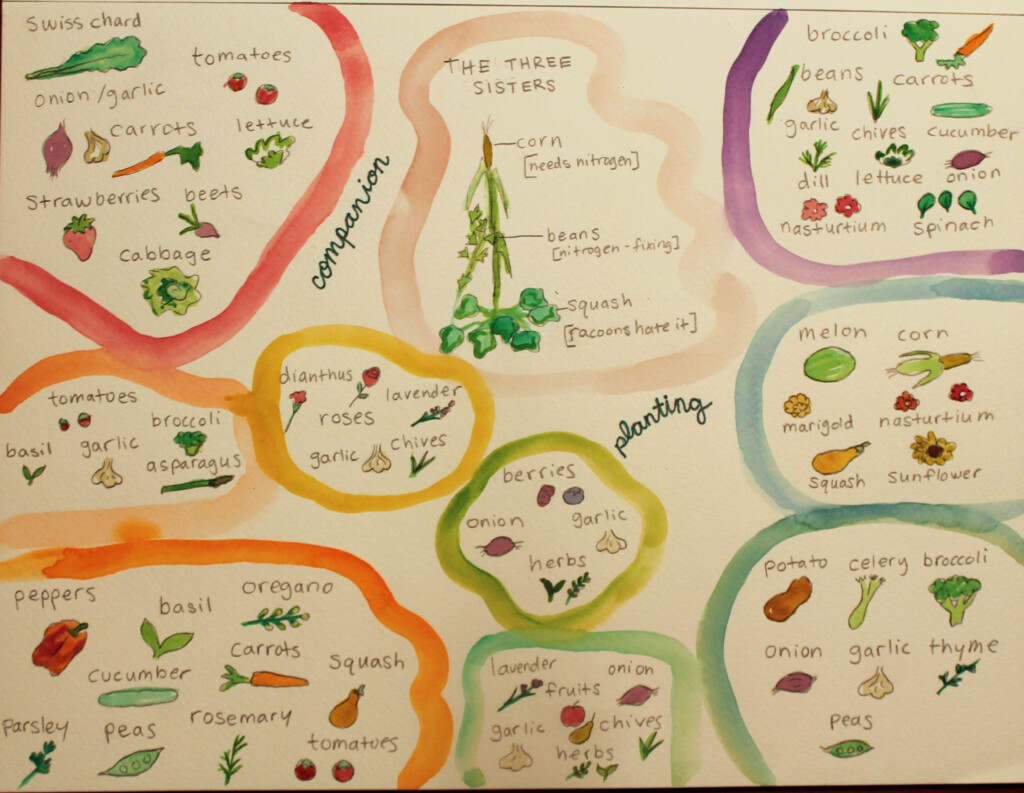 swiss chard
tomatoes
onion/garlic
carrots
lettuce
strawberries
beets
cabbage
companion
THE THREE
SISTERS
corn
[needs nitrogen]
beans
[nitrogen-fixing]
squash
[racoons hate it]
broccoli
beans
carrots
garlic
chives
cucumber
dill
lettuce
onion
nasturtium
spinach
tomatoes
basil
garlic
broccoli
asparagus
dianthus
lavender
roses
garlic
chives
planting
melon
corn
marigold
nasturtium
squash
sunflower
berries
onion
garlic
herbs
peppers
basil
oregano
cucumber
carrots
squash
parsley
peas
rosemary
tomatoes
lavender
onion
fruits
garlic
chives
herbs
potato
celery
broccoli
onion
garlic
thyme
peas